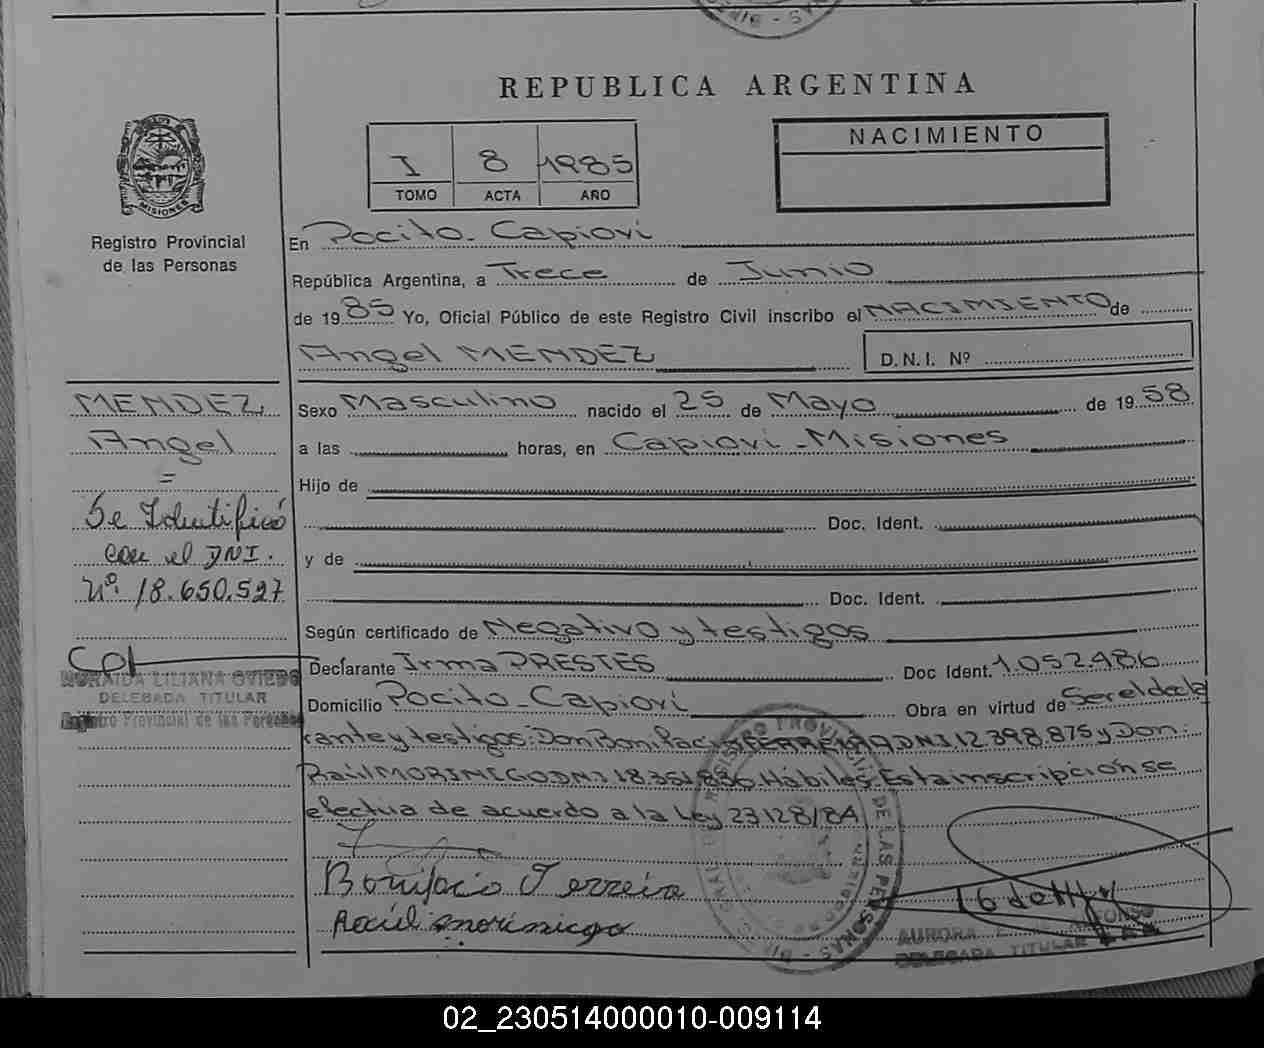 REPUBLICA ARGENTINA
I 8 1985
TOMO ACTA AÑO
NACIMIENTO
MISIONES
Registro Provincial
de las Personas
En Pocito - Capioví
República Argentina, a Trece de Junio
de 1985 Yo, Oficial Público de este Registro Civil inscribo el NACIMIENTO de
Angel MENDEZ D.N.I. Nº
MENDEZ,
Angel
=
Se Identificó
con el DNI.
Nº. 18.650.527
NORAIDA LILIANA OVIEDO
DELEGADA TITULAR
Registro Provincial de las Personas
Sexo Masculino nacido el 25 de Mayo de 1958
a las horas, en Capioví - Misiones
Hijo de
Doc. Ident.
y de
Doc. Ident.
Según certificado de Negativo y testigos
Declarante Irma PRESTES Doc Ident. 1.052.486
Domicilio Pocito - Capioví Obra en virtud de Ser el decla
rante y testigos: Don Bonifacio FERREIRA DNI 12.398.875 y Don:
Raúl MORINIGO DNI 18.351.886. Hábiles. Esta inscripción se
efectúa de acuerdo a la Ley 23128/84
Bonifacio Ferreira
Raúl morinigo
REGISTRO PROVINCIAL DE LAS PERSONAS
AURORA
DELEGADA TITULAR
02_230514000010-009114